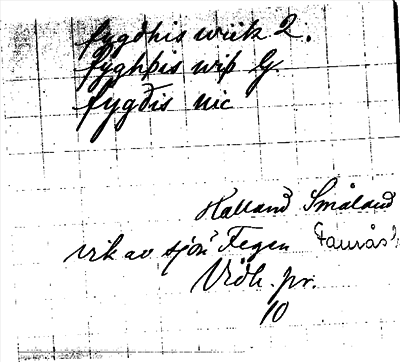 fygdhis wiik 2.
fyghþis wiþ G.
fygðis uic
Halland Småland
vik av sjön Fegen Faurås h
Vidh. pr.
10